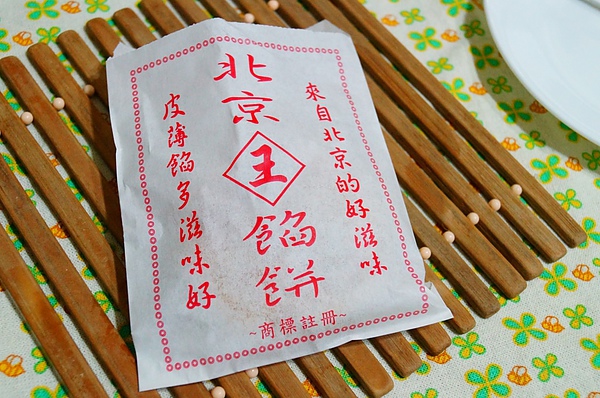 來自北京的好滋味
北京王餡餅
皮薄餡多滋味好
~商標註冊~